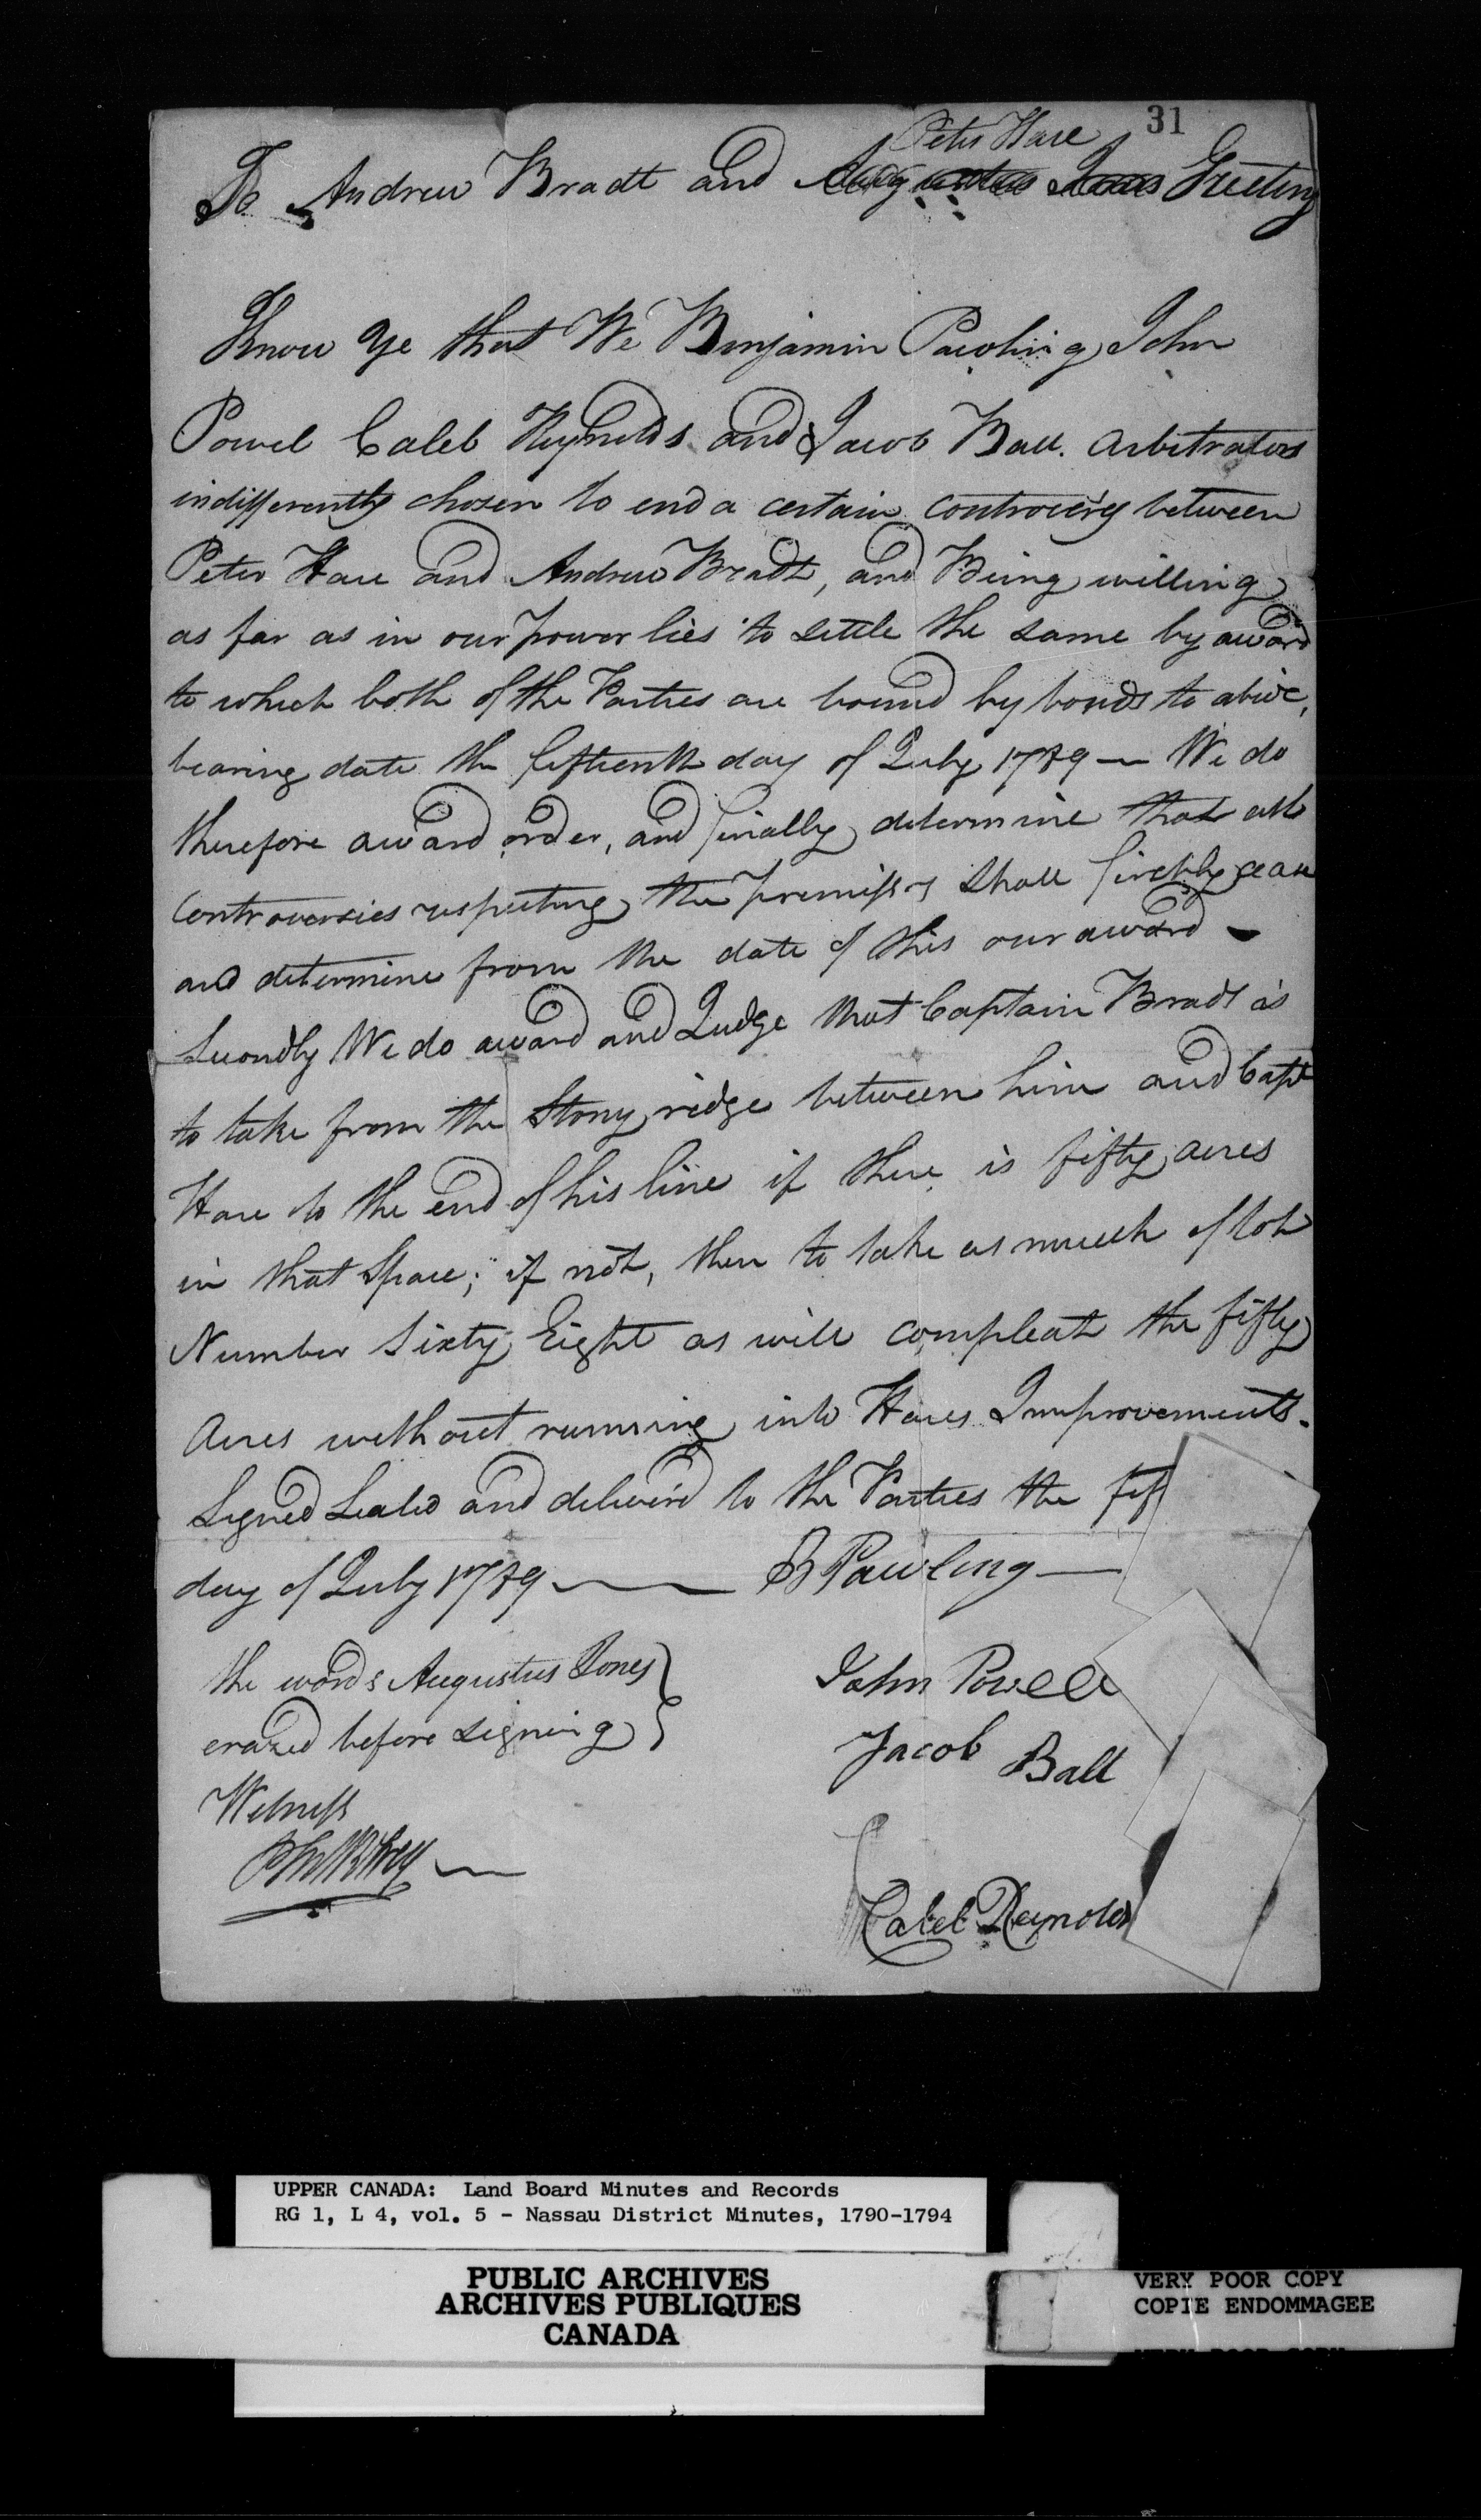 31
Peter Hare
To Andrew Bradt and Augustus Jones Greeting
Know Ye that We Benjamin Pawling John
Powel Caleb Reynolds and Jacob Ball. Arbitrators
indifferently chosen to end a certain controversy between
Peter Hare and Andrew Bradt, and Being willing
as far as in our power lies to settle the same by award
to which both of the Parties are bound by bonds to abide,
bearing date the fifteenth day of July 1789 — We do
therefore award order, and finally determine that all
Controversies respecting the premisses shall firstly cease
and determine from the date of this our award —
Secondly We do award and Judge that Captain Bradt is
to take from the Stony ridge between him and Capt
Hare to the end of his line if there is fifty acres
in that Space; if not, then to take as much of lot
Number Sixty Eight as will compleat the fifty
Acres without running into Hares Improvements.
Signed Sealed and deliver'd to the Parties the fif
day of July 1789 — B Pawling —
the words Augustus Jones
erazed before signing
John Powell
Jacob Ball
Witness
Caleb Reynolds
UPPER CANADA: Land Board Minutes and Records
RG 1, L 4, vol. 5 - Nassau District Minutes, 1790-1794
PUBLIC ARCHIVES
ARCHIVES PUBLIQUES
CANADA
VERY POOR COPY
COPIE ENDOMMAGEE